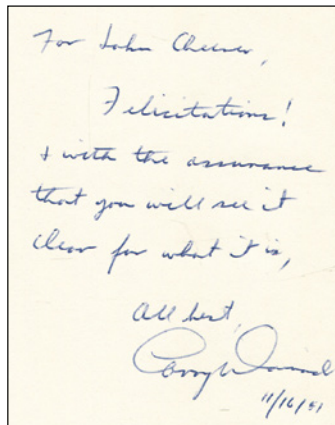 For John Cheever,
Felicitations!
& with the assurance
that you will see it
clear for what it is,
All best,
11/16/51